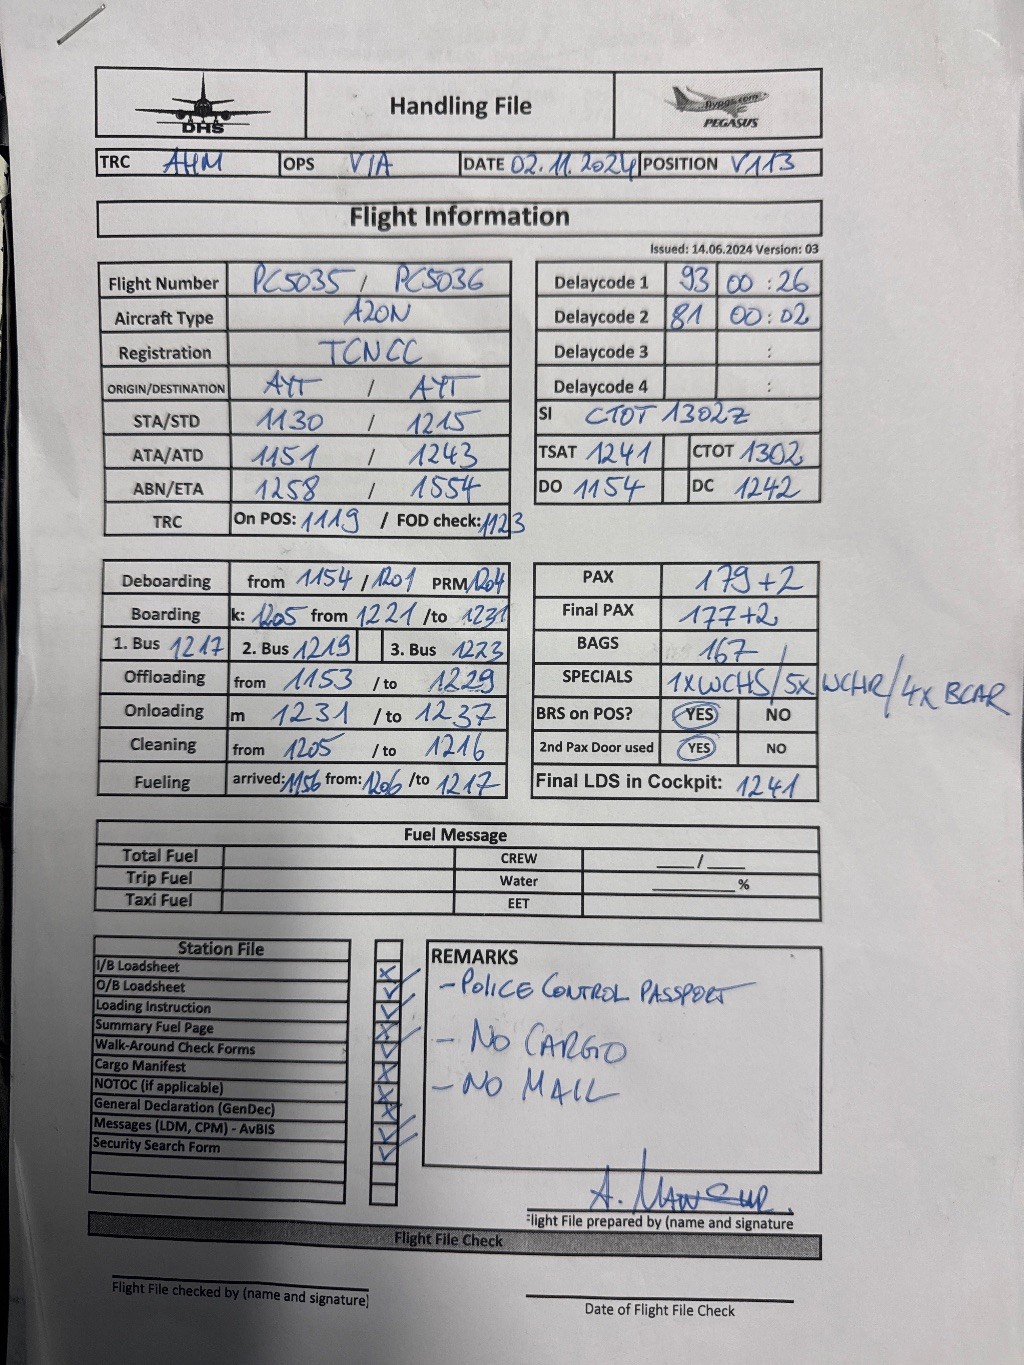 DHS
Handling File
flypgs.com
PEGASUS
TRC AHM OPS VIA DATE 02.11.2024 POSITION V113
Flight Information
Issued: 14.06.2024 Version: 03
Flight Number PC5035 / PC5036
Aircraft Type A20N
Registration TCNCC
ORIGIN/DESTINATION AYT / AYT
STA/STD 1130 / 1215
ATA/ATD 1151 / 1243
ABN/ETA 1258 / 1554
TRC On POS: 1119 / FOD check: 1123
Delaycode 1 93 00 : 26
Delaycode 2 81 00 : 02
Delaycode 3 :
Delaycode 4 :
SI CTOT 1302Z
TSAT 1241 CTOT 1302
DO 1154 DC 1242
Deboarding from 1154 / 1201 PRM 1204
Boarding k: 1205 from 1221 /to 1231
1. Bus 1217 2. Bus 1219 3. Bus 1223
Offloading from 1153 / to 1229
Onloading m 1231 / to 1237
Cleaning from 1205 / to 1216
Fueling arrived: 1156 from: 1206 /to 1217
PAX 179+2
Final PAX 177+2
BAGS 167
SPECIALS 1XWCHS/5XWCHR/4XBCAR
BRS on POS? YES NO
2nd Pax Door used YES NO
Final LDS in Cockpit: 1241
Fuel Message
Total Fuel CREW ___/___
Trip Fuel Water ______%
Taxi Fuel EET
Station File
I/B Loadsheet
O/B Loadsheet
Loading Instruction
Summary Fuel Page
Walk-Around Check Forms
Cargo Manifest
NOTOC (if applicable)
General Declaration (GenDec)
Messages (LDM, CPM) - AvBIS
Security Search Form
REMARKS
- POLICE CONTROL PASSPORT
- NO CARGO
- NO MAIL
A. MANSUR
Flight File prepared by (name and signature
Flight File Check
Flight File checked by (name and signature)
Date of Flight File Check